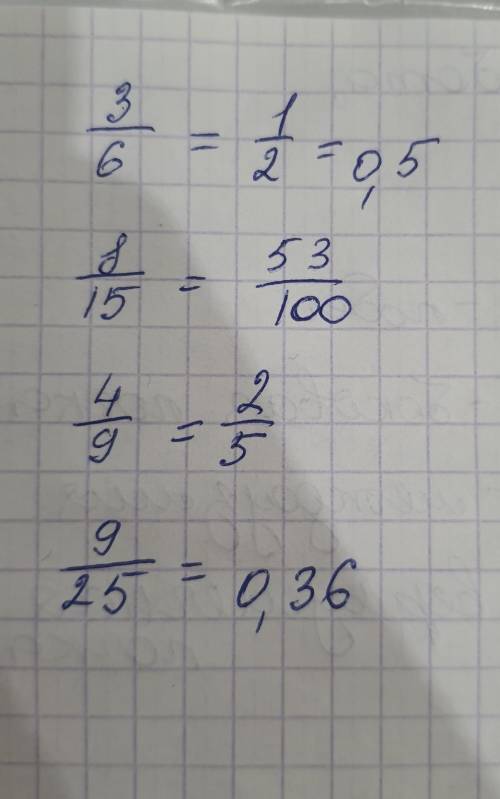 3/6 = 1/2 = 0,5
8/15 = 53/100
4/9 = 2/5
9/25 = 0,36